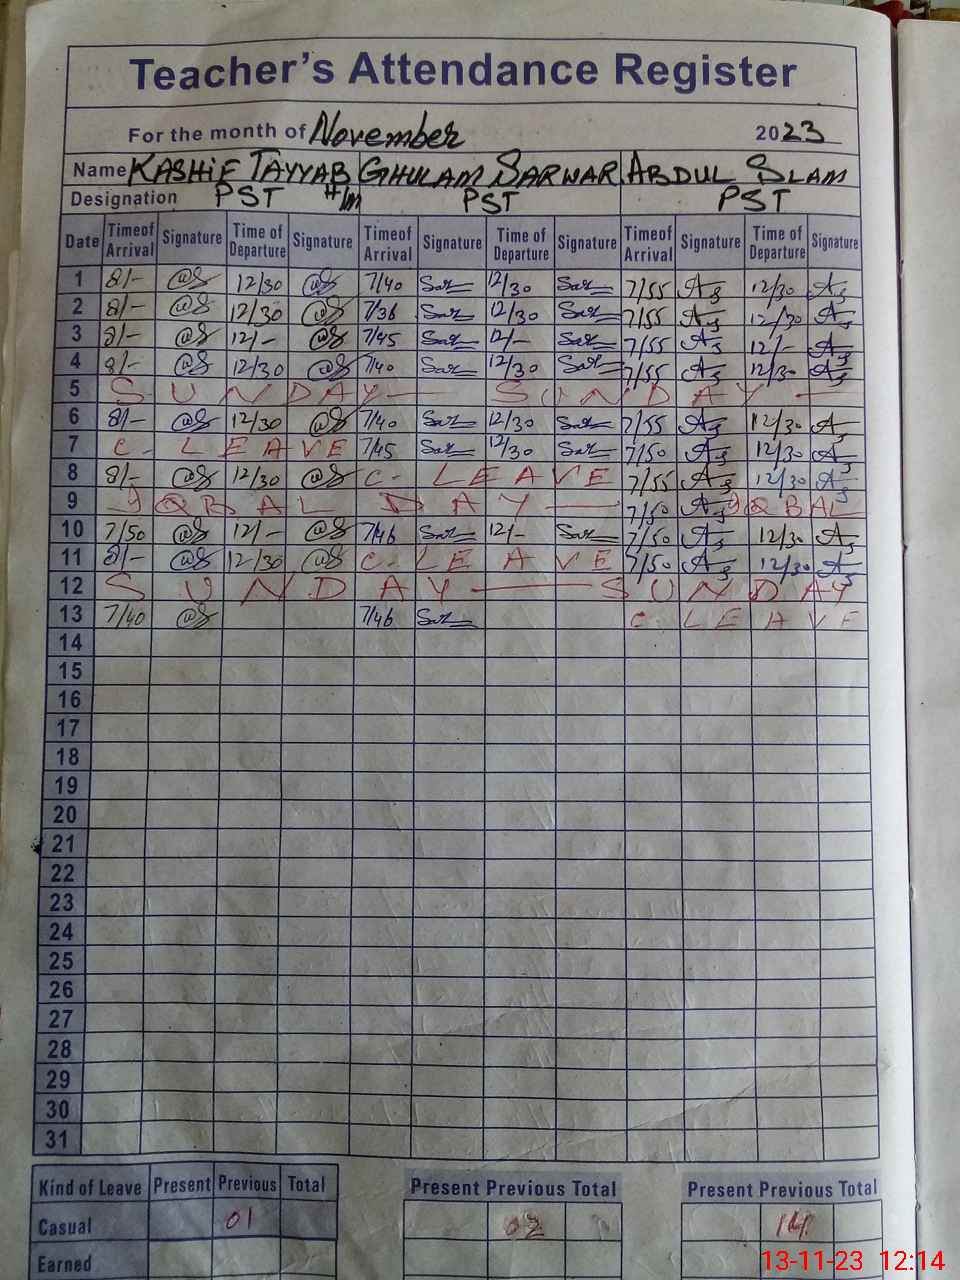 Teacher's Attendance Register
For the month of November 2023
Name KASHIF TAYYAB GHULAM SARWAR ABDUL SLAM
Designation PST H/m PST PST
Date Timeof Arrival Signature Time of Departure Signature Timeof Arrival Signature Time of Departure Signature Timeof Arrival Signature Time of Departure Signature
1 8/- 12/30 7/40 Sar 12/30 Sar 7/55 As 12/30 As
2 8/- 12/30 7/36 Sar 12/30 Sar 7/55 As 12/30 As
3 8/- 12/- 7/45 Sar 12/- Sar 7/55 As 12/- As
4 8/- 12/30 7/40 Sar 12/30 Sar 7/55 As 12/30 As
5 SUNDAY — SUNDAY —
6 8/- 12/30 7/40 Sar 12/30 Sar 7/55 As 12/30 As
7 C. LEAVE 7/45 Sar 12/30 Sar 7/50 As 12/30 As
8 8/- 12/30 C. LEAVE 7/55 As 12/30 As
9 IQBAL DAY — 7/50 As IQBAL
10 7/50 12/- 7/46 Sar 12/- Sar 7/50 As 12/30 As
11 8/- 12/30 C. LEAVE 7/50 As 12/30 As
12 SUNDAY — SUNDAY
13 7/40 7/46 Sar C. LEAVE
14
15
16
17
18
19
20
21
22
23
24
25
26
27
28
29
30
31
Kind of Leave Present Previous Total Present Previous Total Present Previous Total
Casual 01 02 14
Earned
13-11-23 12:14